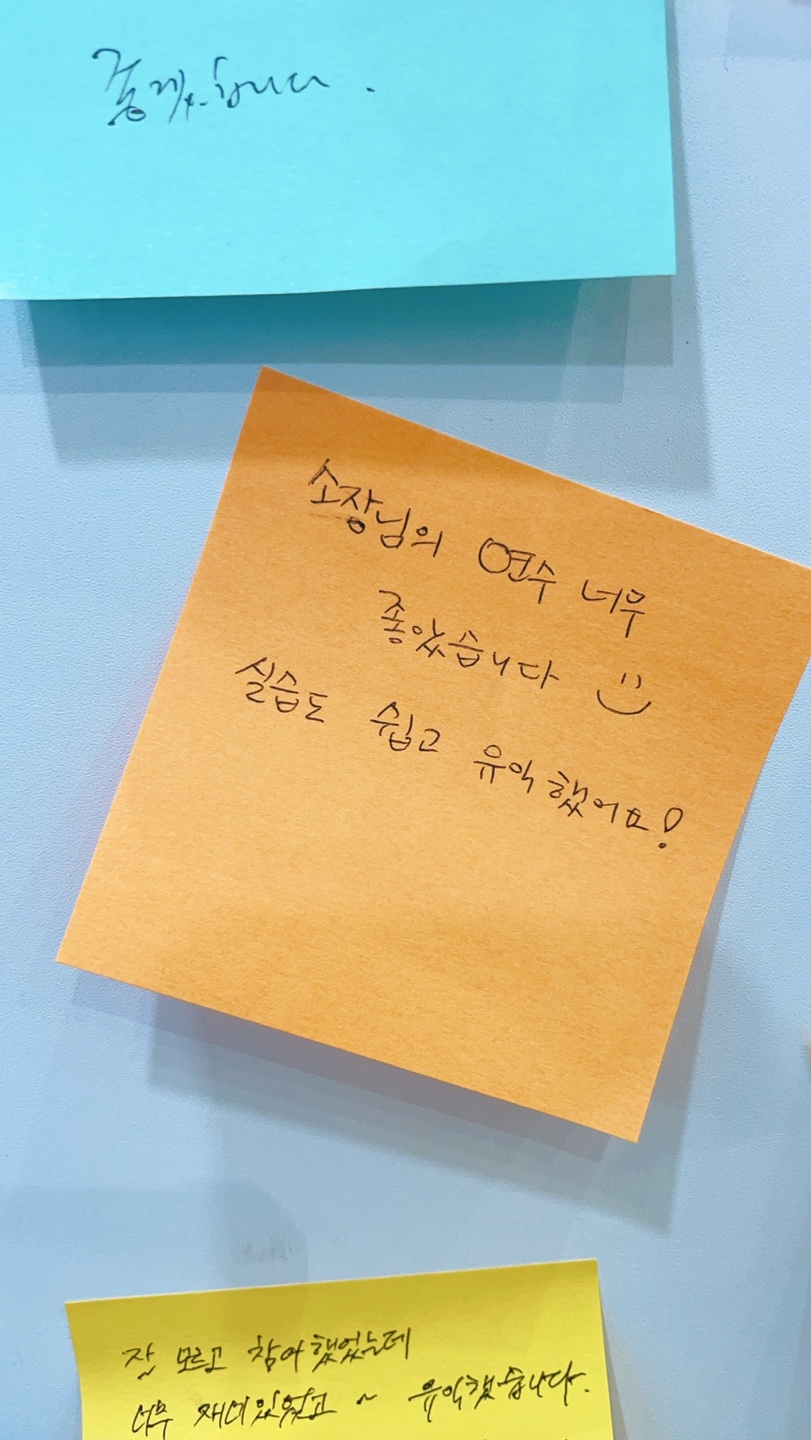 좋겠습니다.
소장님의 연수 너무
좋았습니다
실습도 쉽고 유익했어요!
잘 모르고 참여했었는데
너무 재미있었고 ~ 유익했습니다.